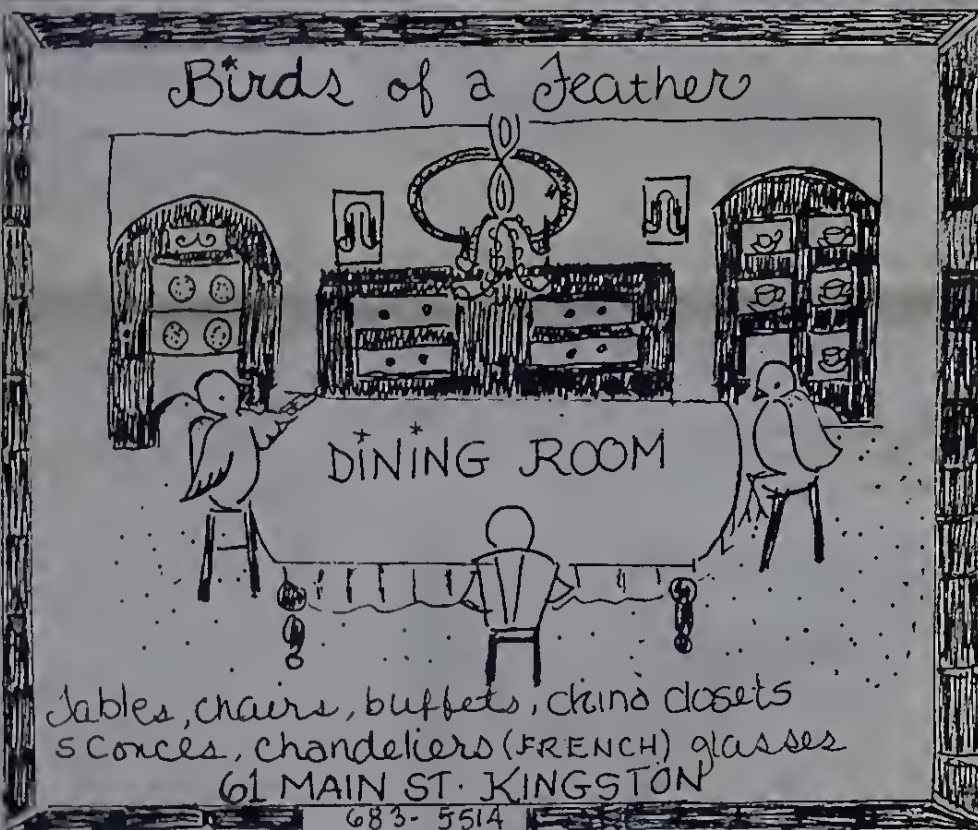 Birds of a Feather
DiNiNG ROOM
Tables, chairs, buffets, china closets
sconces, chandeliers (FRENCH) glasses
61 MAIN ST. KINGSTON
683-5514